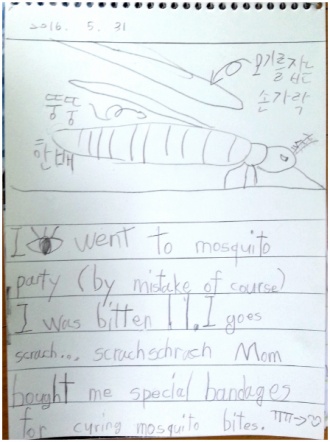 2016. 5. 31
오징훈 같은
손가락
뚱뚱
한 배
I went to mosquito
party (by mistake of course)
I was bitten !!. I goes
scrach... scrachschrach Mom
bought me special bandages
for curing mosquito bites. ㅠㅠ→